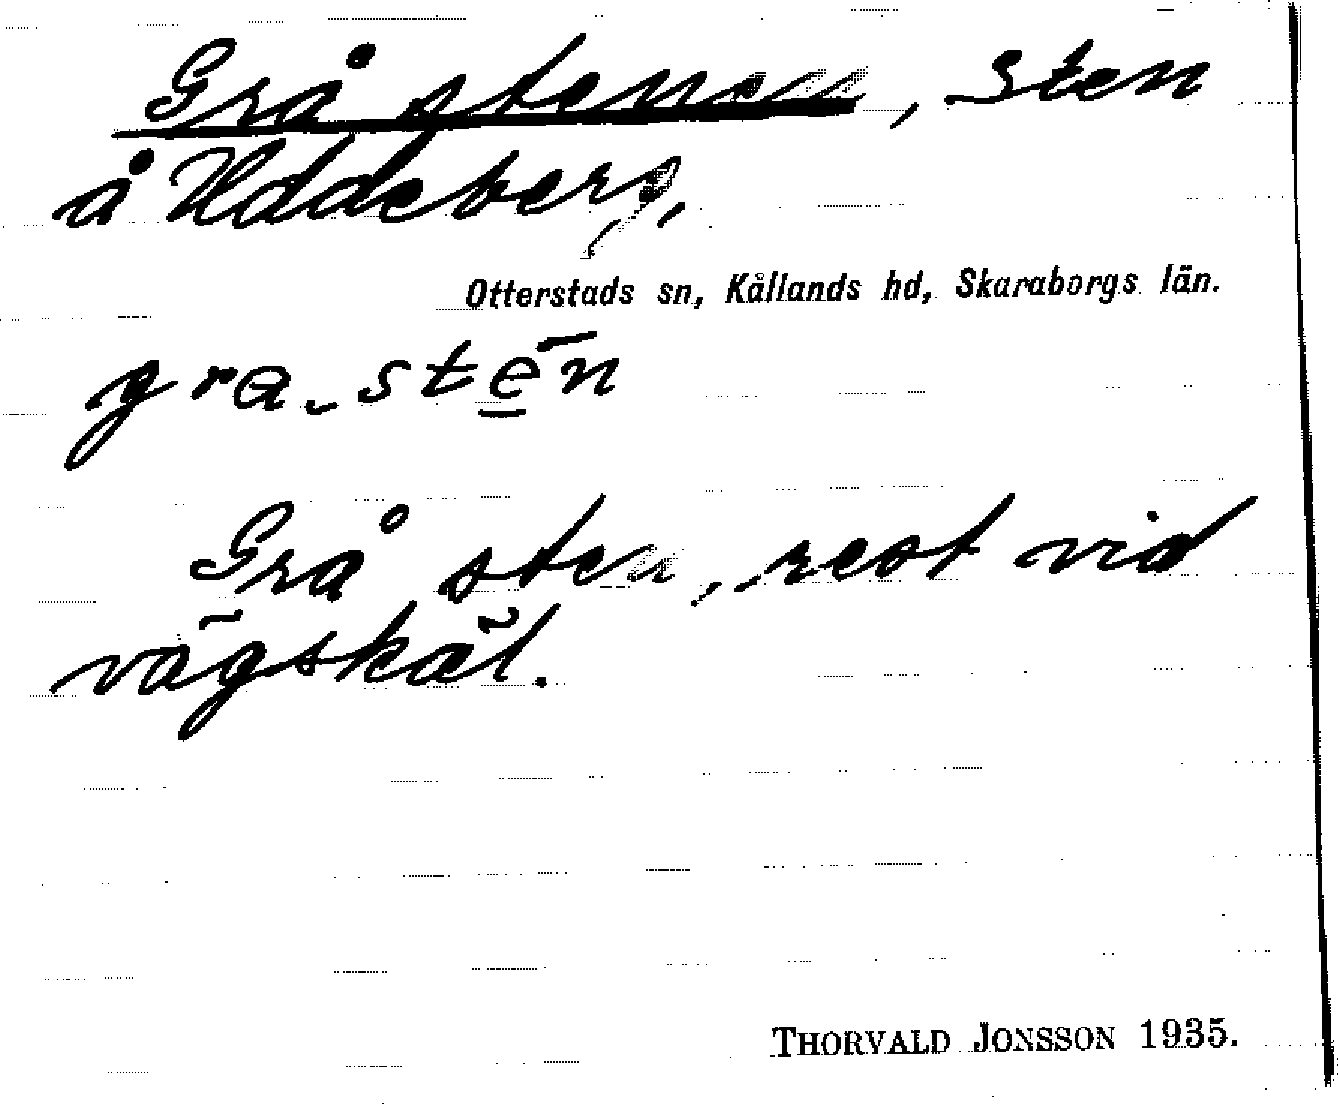 Grå stenen, sten
å Uddeberg,
Otterstads sn, Kållands hd, Skaraborgs län.
Grå sten, rest vid
vägskäl.
THORVALD JONSSON 1935.